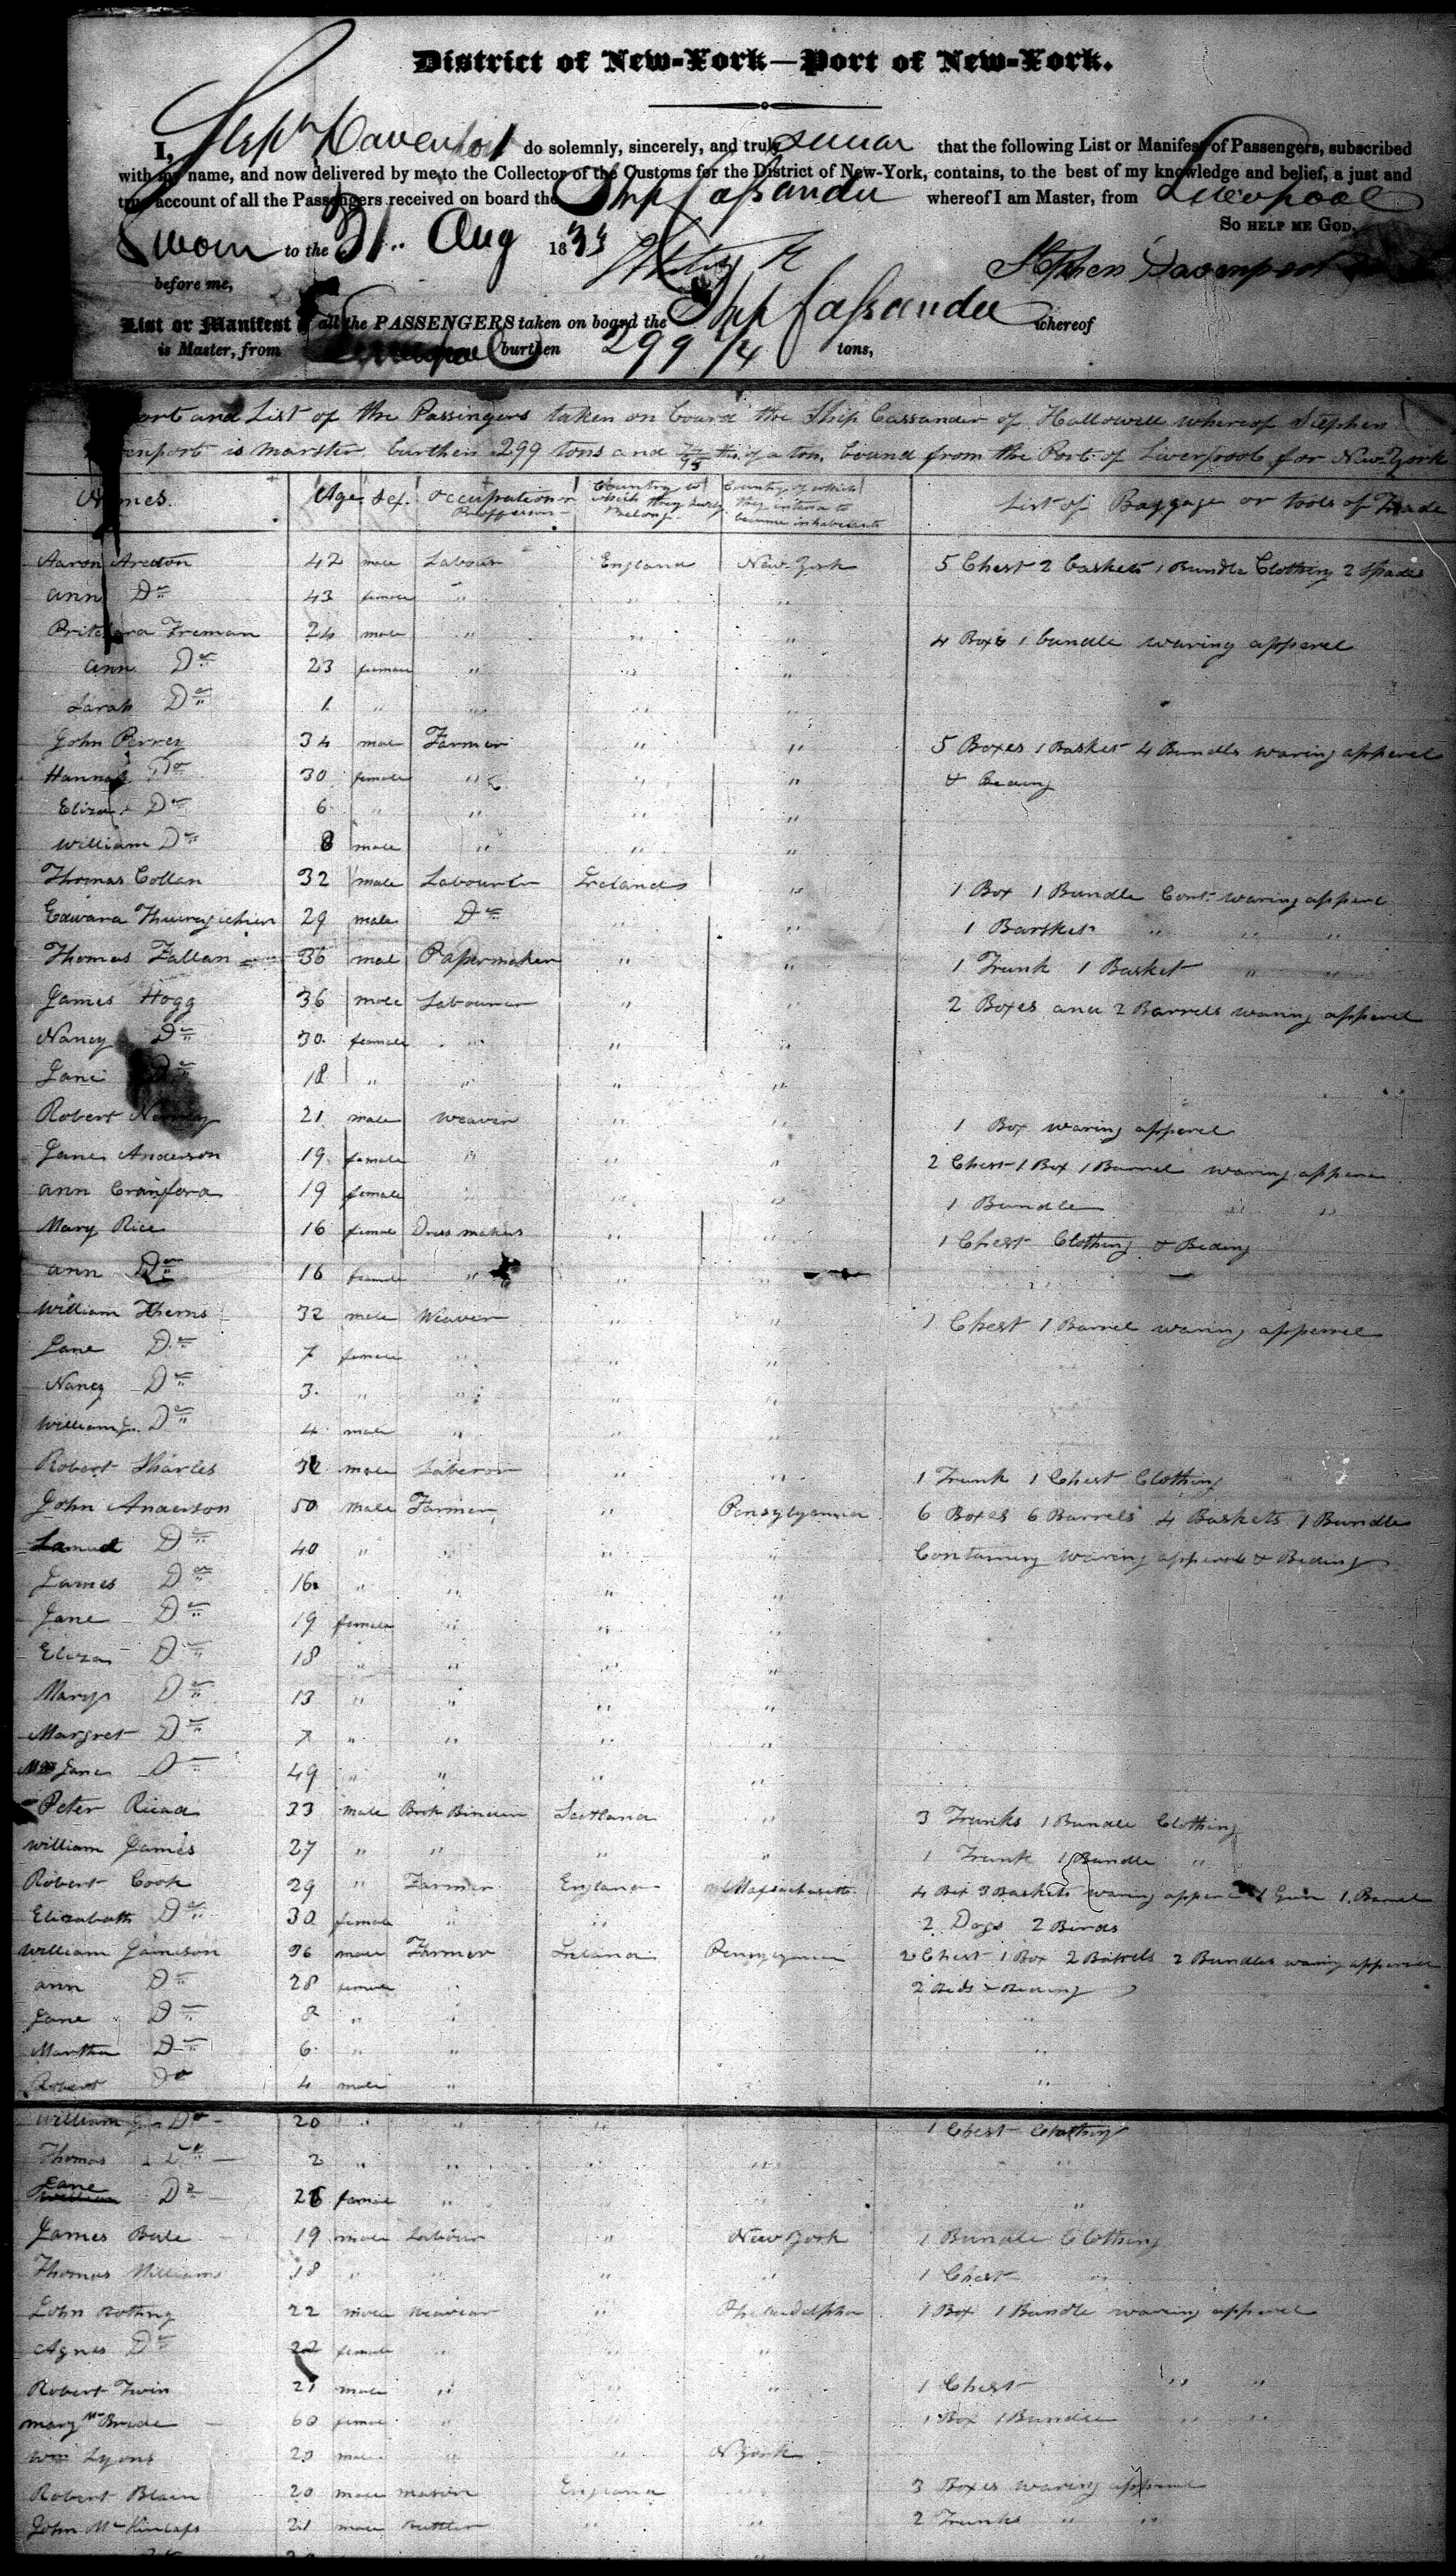 District of New-York—Port of New-York.
I, Stepn Davenport do solemnly, sincerely, and truly swear that the following List or Manifest of Passengers, subscribed
with my name, and now delivered by me to the Collector of the Customs for the District of New-York, contains, to the best of my knowledge and belief, a just and
true account of all the Passengers received on board the Ship Cassander whereof I am Master, from Liverpool
So HELP ME GOD.
Sworn to the 31 Aug 1833
before me,
Stephen Davenport
List or Manifest of all the PASSENGERS taken on board the Ship Cassander whereof
is Master, from Liverpool burthen 299 tons,
and List of the Passingers taken on board the Ship Cassander of Hallowell whereof Stephen
is marster burthen 299 tons and of a ton, bound from the Port of Liverpool for New-York
Names Age Sex Occupation or Country to which they Belong Country of which they intend to become inhabitants List of Baggage or tools of Trade
Aaron Aredon 42 male Labour England New York 5 Chest 2 baskets 1 Bundle Clothing 2 Spades
ann Do 43 female " " "
Freman 24 male " " " 4 Boxes 1 bundle waring apperel
ann Do 23 female " " "
Sarah Do 1 " " " "
John Perrey 34 male Farmer " " 5 Boxes 1 Basket 4 Bundls waring apperel
Hannah Do 30 female " " " & Beding
Eliza Do 6 " " " "
William Do 8 male " " "
Thomas Collan 32 male Labourer Ireland " 1 Box 1 Bundle Cont. waring apperel
Edward 29 male Do " " 1 Barsket " " "
Thomas Fallan 36 male Papermaker " " 1 Trunk 1 Basket " "
James Hogg 36 male Labourer " " 2 Boxes and 2 Barrels waring apperel
Nancy Do 30 female " " "
Jane Do 18 " " " "
Robert 21 male weaver " " 1 Box waring apperel
Jane Anderson 19 female " " " 2 Chest 1 Box 1 Barrel waring apperel
ann Cranford 19 female " " " 1 Bundle " "
Mary Rice 16 female Dress makers " " 1 Chest Clothing & Beding
ann Do 16 female " " "
William Therns 32 male Weaver " " 1 Chest 1 Barrel waring apperrel
Jane Do 7 female " " "
Nancy Do 3 " " " "
William Jn. Do 4 male " " "
Robert Sharles male Laberor " " 1 Trunk 1 Chest Clothing
John Anderson 50 male Farmer " Pensylvannia 6 Boxes 6 Barrels 4 Baskets 1 Bundle
Samuel Do 40 " " " " Contaning waring apperel & Beding
James Do 16 " " " "
Jane Do 19 female " " "
Eliza Do 18 " " " "
Mary Do 13 " " " "
Margret Do 7 " " " "
Jane Do 49 " " " "
Peter Riead 23 male Book Binder Scotland " 3 Trunks 1 Bundle Clothing
William James 27 " " " " 1 Trunk 1 Bundle "
Robert Cook 29 " Farmer England Massachusetts 4 Box 3 Baskets waring apperel 1 Gun 1 Barrel
Elizabath Do 30 female " " 2 Dogs 2 Birds
William Jameson 36 male Farmer Ireland 2 Chest 1 Box 2 Barrels 2 Bundles waring apperel
ann Do 28 female " 2 Beds & Beding
Jane Do 8 " "
Martha Do 6 " " "
Robert Do 4 male " "
William Do 20 " " " 1 Chest Clothing
Thomas Do 2 " " " " "
Jane Do female " " "
James Bule 19 male Labour " New York 1 Bundle Clothing
Thomas Williams 18 " " " " 1 Chest "
John Bothing 22 male weaver " Philaddelpha 1 Box 1 Bundle waring apperel
Agnes Do 22 female " " "
Robert Irvin 21 male " " " 1 Chest " "
mary McBride 60 female " " 1 Box 1 Bundle " "
Wm Lyons 20 male " " N York
Robert Blain 20 male mason England 3 Boxes waring apperel
John 21 male " " 2 Trunks " "